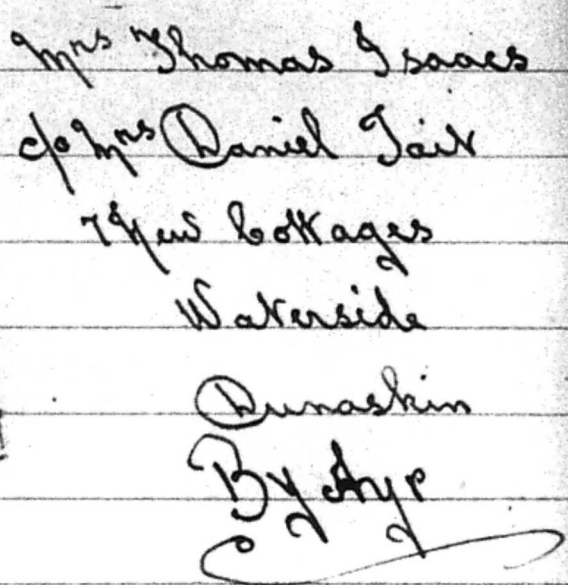 Mrs Thomas Isaacs
c/o Mrs Daniel Tait
7 New Cottages
Waterside
Dunaskin
By Ayr